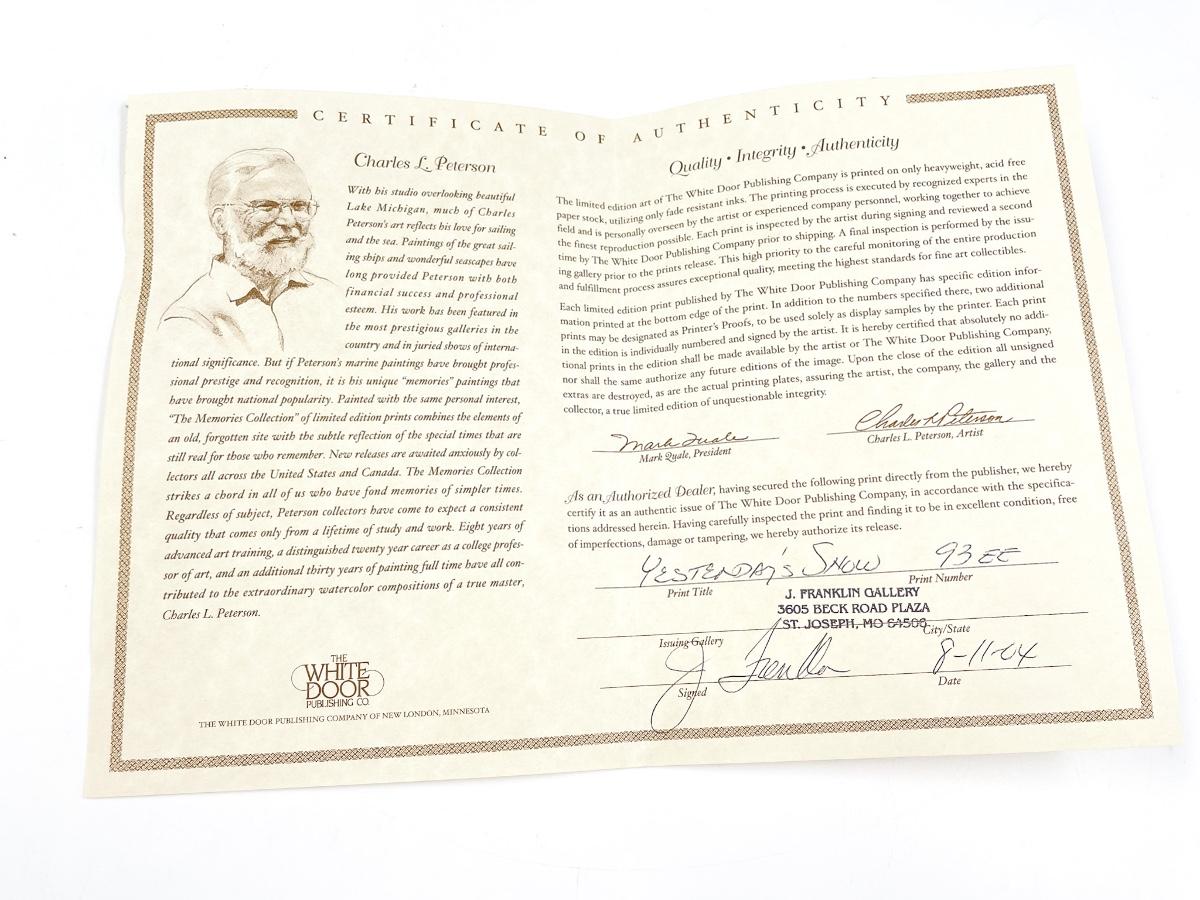 CERTIFICATE OF AUTHENTICITY
Charles L. Peterson
With his studio overlooking beautiful
Lake Michigan, much of Charles
Peterson's art reflects his love for sailing
and the sea. Paintings of the great sail-
ing ships and wonderful seascapes have
long provided Peterson with both
financial success and professional
esteem. His work has been featured in
the most prestigious galleries in the
country and in juried shows of interna-
tional significance. But if Peterson's marine paintings have brought profes-
sional prestige and recognition, it is his unique "memories" paintings that
have brought national popularity. Painted with the same personal interest,
"The Memories Collection" of limited edition prints combines the elements of
an old, forgotten site with the subtle reflection of the special times that are
still real for those who remember. New releases are awaited anxiously by col-
lectors all across the United States and Canada. The Memories Collection
strikes a chord in all of us who have fond memories of simpler times.
Regardless of subject, Peterson collectors have come to expect a consistent
quality that comes only from a lifetime of study and work. Eight years of
advanced art training, a distinguished twenty year career as a college profes-
sor of art, and an additional thirty years of painting full time have all con-
tributed to the extraordinary watercolor compositions of a true master,
Charles L. Peterson.
THE
WHITE
DOOR
PUBLISHING CO.
THE WHITE DOOR PUBLISHING COMPANY OF NEW LONDON, MINNESOTA
Quality • Integrity • Authenticity
The limited edition art of The White Door Publishing Company is printed on only heavyweight, acid free
paper stock, utilizing only fade resistant inks. The printing process is executed by recognized experts in the
field and is personally overseen by the artist or experienced company personnel, working together to achieve
the finest reproduction possible. Each print is inspected by the artist during signing and reviewed a second
time by The White Door Publishing Company prior to shipping. A final inspection is performed by the issu-
ing gallery prior to the prints release. This high priority to the careful monitoring of the entire production
and fulfillment process assures exceptional quality, meeting the highest standards for fine art collectibles.
Each limited edition print published by The White Door Publishing Company has specific edition infor-
mation printed at the bottom edge of the print. In addition to the numbers specified there, two additional
prints may be designated as Printer's Proofs, to be used solely as display samples by the printer. Each print
in the edition is individually numbered and signed by the artist. It is hereby certified that absolutely no addi-
tional prints in the edition shall be made available by the artist or The White Door Publishing Company,
nor shall the same authorize any future editions of the image. Upon the close of the edition all unsigned
extras are destroyed, as are the actual printing plates, assuring the artist, the company, the gallery and the
collector, a true limited edition of unquestionable integrity.
Mark Quale
Mark Quale, President
Charles L Peterson
Charles L. Peterson, Artist
As an Authorized Dealer, having secured the following print directly from the publisher, we hereby
certify it as an authentic issue of The White Door Publishing Company, in accordance with the specifica-
tions addressed herein. Having carefully inspected the print and finding it to be in excellent condition, free
of imperfections, damage or tampering, we hereby authorize its release.
YESTERDAY'S SNOW 93 EE
Print Title Print Number
J. FRANKLIN GALLERY
3605 BECK ROAD PLAZA
ST. JOSEPH, MO 64506
Issuing Gallery City/State
J Franklin 8-11-04
Signed Date